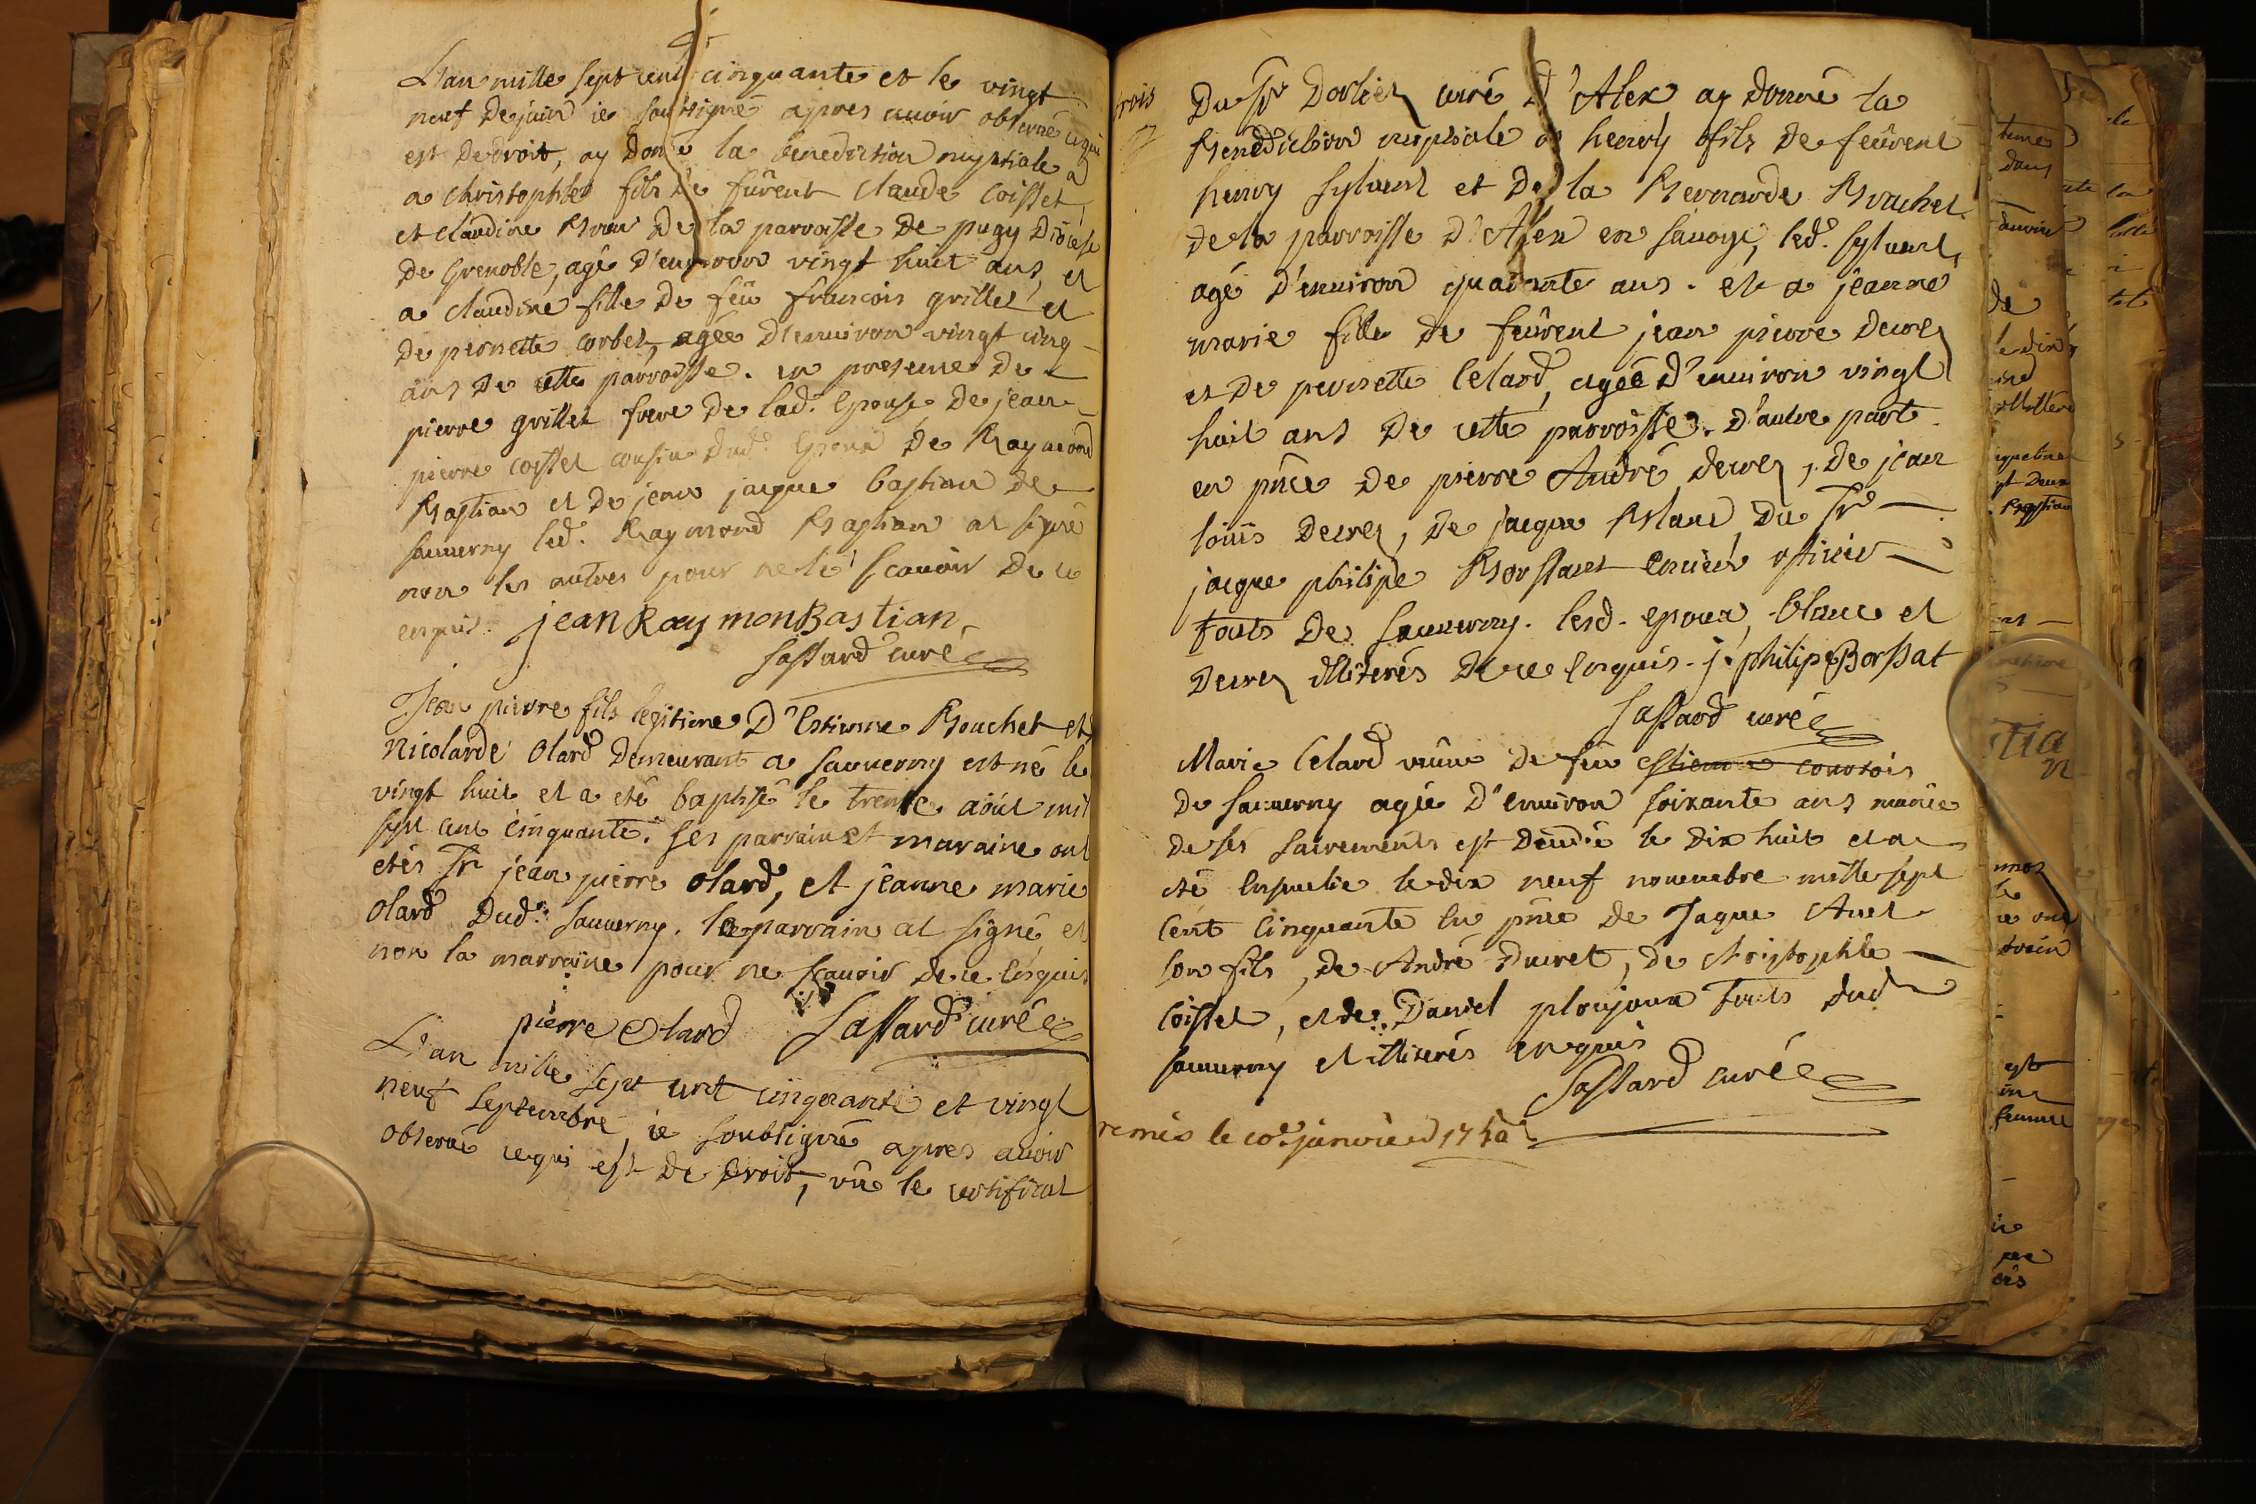 L'an mille sept cent cinquante et le vingt
neuf de juin ie soussigné apres auoir obserué ce qui
est de droit, ay donné la benediction nuptiale a
a christophle fils de fûrent claude Coisset,
et claudine de la parroisse de pugy Diocese
de Grenoble, agé d'environ vingt huit ans, et
a claudine fille de feu francois grillet et
de pernette corbet, agée d'enuiron vingt cinq
ans de cette parroisse. en presence de
pierre grillet frere de lad. epouse de jean
pierre coisset cousin dud. epoux de Raymond
Bastian et de jean jacque bastian de
sauuerny led. Raymond Bastian at signé
non les autres pour ne le scauoir de ce
enquis. jean Raymon Bastian
Jassard curé
Jean pierre fils legitime d'Estienne Bouchet et
Nicolarde Olard demeurant a sauuerny est né le
vingt huit et a eté baptisé le trente aôut mil
sept cent cinquante. ses parrain et maraine ont
etés Sr jean pierre Olard, et jeanne marie
Olard dud. sauuerny. le parrain at signé et
non la marraine pour ne scauoir de ce enquis
pierre Olard Jassard curé
L'an mille sept cent cinquante et vingt
neuf septembre, ie soubsigné apres auoir
obserué ce qui est de droit, vû le certificat
trois
du Sr Dorlier curé d'Alex ay donné la
Benediction nuptiale a henry fils de feûrent
henry syluent et de la Bernarde Brachet
de la parroisse d'Alex en sauoye, led. syluent,
agé d'enuiron quarante ans. et a jeanne
marie fille de feûrent jean pierre Decre
et de pernette Celard, agée d'enuiron vingt
huit ans de cette parroisse. d'autre part
en pñce de pierre André decre, de jean
loüis Decre, de jacque Blanc, du Sr
jacque philipe Borssat officier
touts de sauuerny. lesd. epoux, blanc et
Decre illiterés de ce enquis. j. philipe Borssat
Jassard curé
Marie Celard veüue de feu estienne courtois
de sauuerny agée d'enuiron soixante ans munie
de ses sacrements est decedée le dix huit et a
eté le dix neuf nouembre mille sept
cent cinquante en pñce de Jaque
son fils, de André Ducret, de christophle
Coisset, et de Daniel ploujoux touts dud
sauuerny et illiterés enquis
Jassard curé
remis le 10e janvier